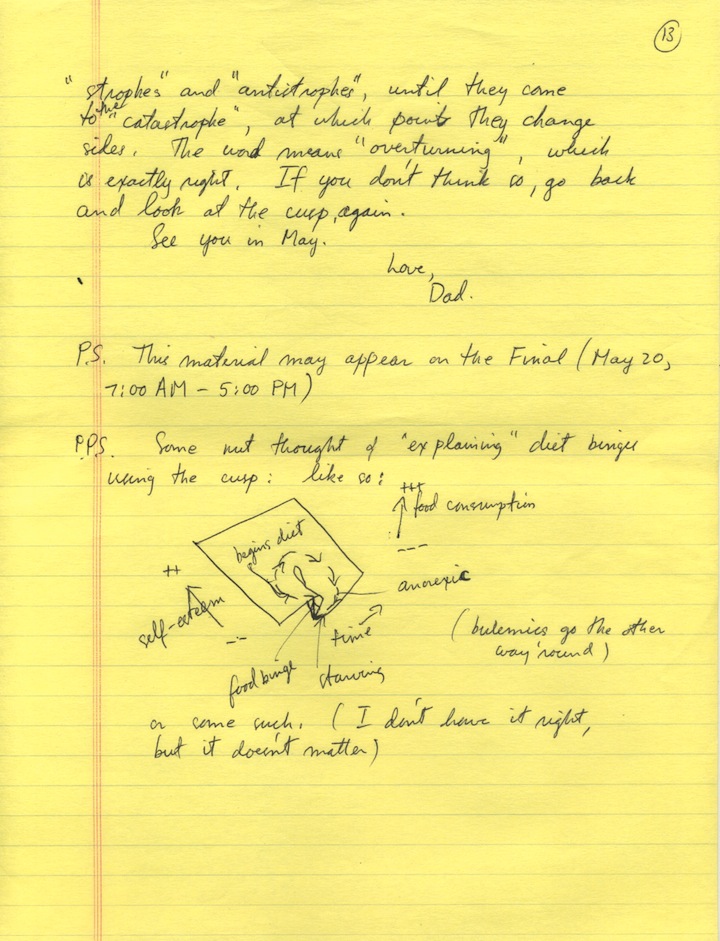 13
"strophes" and "antistrophes", until they come
to the "catastrophe", at which point they change
sides. The word means "overturning", which
is exactly right. If you don't think so, go back
and look at the cusp, again.
See you in May.
Love,
Dad.
P.S. This material may appear on the Final (May 20,
7:00 AM – 5:00 PM)
P.P.S. Some nut thought of "explaining" diet binges
using the cusp: like so:
+++
food consumption
---
begins diet
++
self-esteem
--
anorexic
time
food binge
starving
(bulemics go the other
way 'round)
or some such. (I don't have it right,
but it doesn't matter)